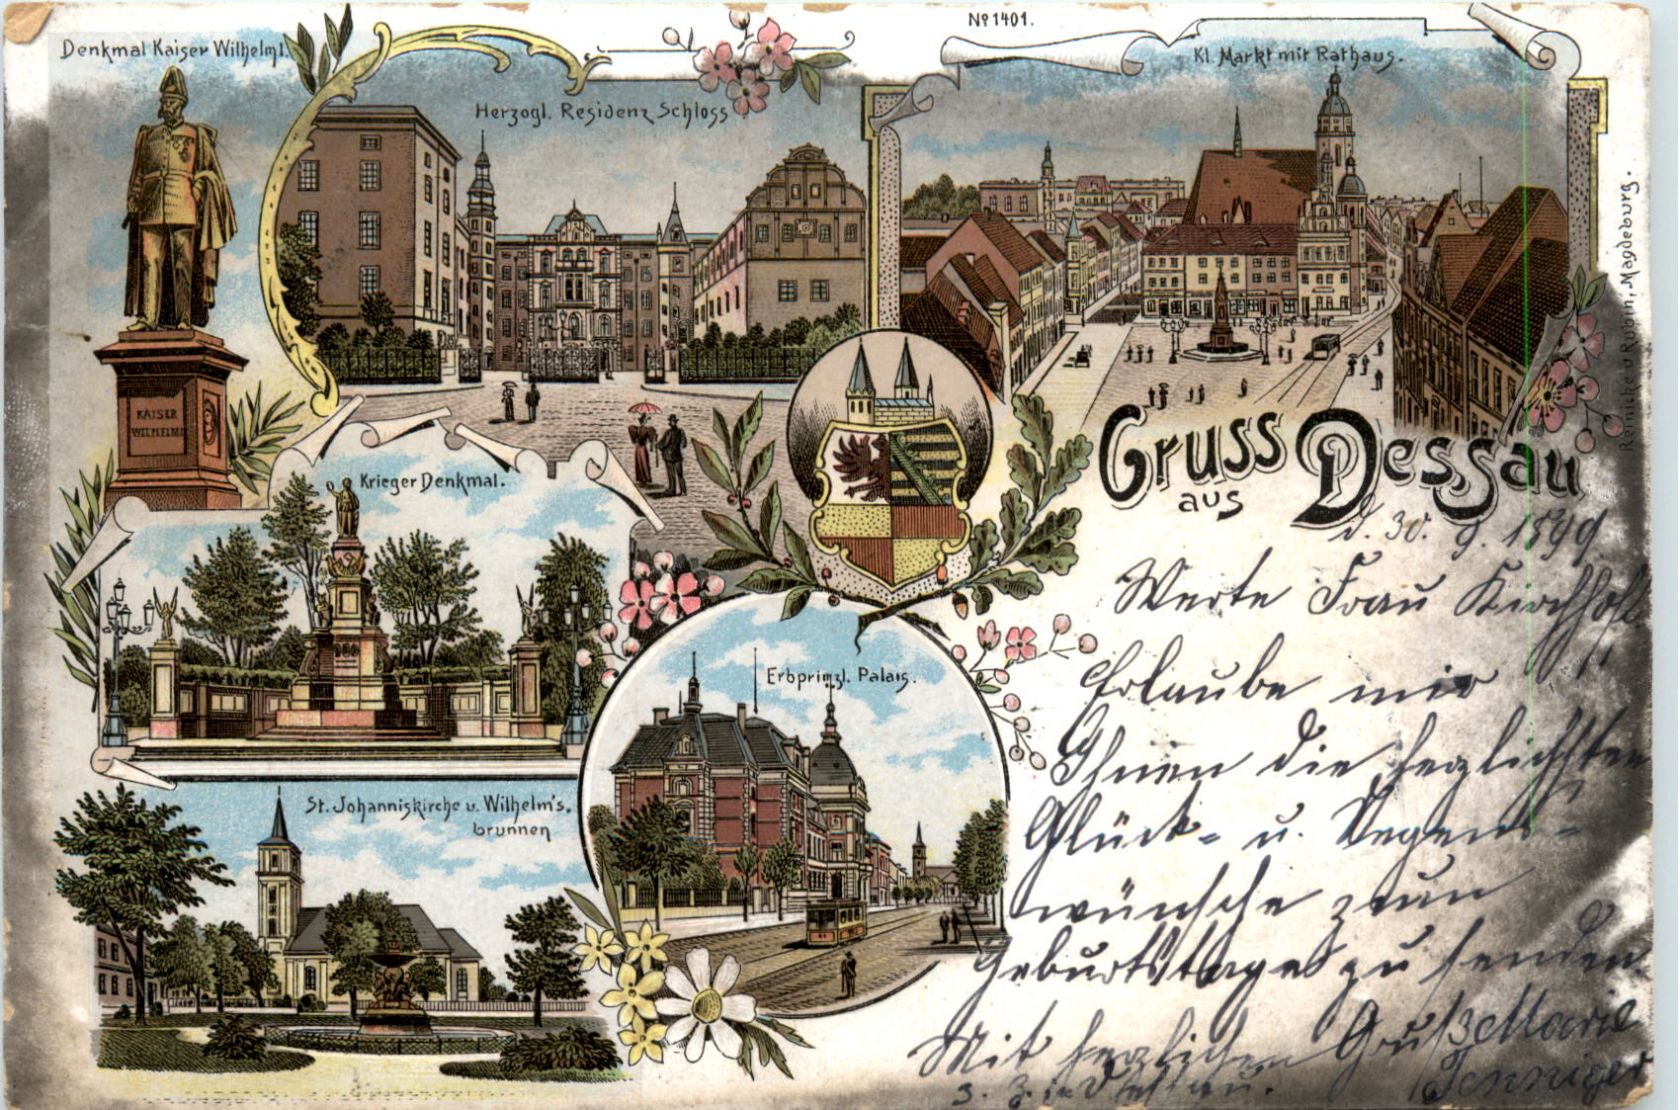 No 1401.
Denkmal Kaiser Wilhelm I.
Herzogl. Residenz Schloss
Kl. Markt mit Rathaus.
KAISER
WILHELM I.
Krieger Denkmal.
Erbprinzl. Palais.
St. Johanniskirche u. Wilhelm's.
brunnen
Reinicke u. Rubin, Magdeburg.
Gruss
aus Dessau
d. 30. 9. 1899
Werte Frau Kirchhoff
Erlaube mir
Ihnen die herzlichsten
Glück- u. Segens-
wünsche zum
Geburtstage zu senden
Mit herzlichen Gruß Marie
z. Z. in Dessau.